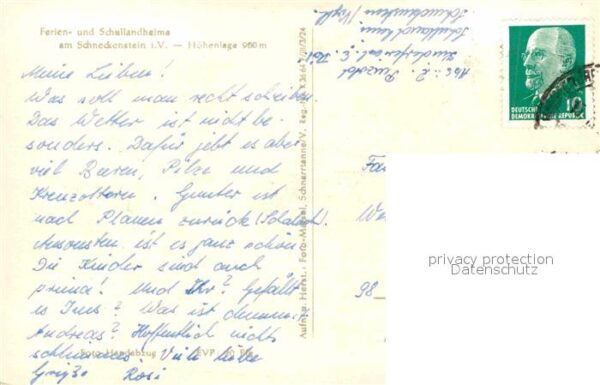 Ferien- und Schullandheime
am Schneckenstein i.V. — Höhenlage 960 m
Meine Lieben!
Was soll man recht schreiben.
Das Wetter ist nicht be-
sonders. Dafür gibt es aber
viel Beeren, Pilze und
Kreuzottern. Gunter ist
nach Plauen zurück (Soldat).
Ansonsten ist es ganz schön.
Die Kinder sind auch
prima! Und Ihr? Gefällt
es Ines? Was ist denn mit
Andreas? Hoffentlich nichts
schlimmes. Viele liebe
Grüße Rosi
Foto-Handabzug EVP
Aufn. u. Herst.: Foto-Meisel, Schnarrtanne/V. Reg.
Abs.:
Kinderferienl.
Schullandheim
Schneckenstein / Vogtl.
DEUTSCHE
DEMOKRATISCHE REPUBLIK
10
Fa
We
98
privacy protection
Datenschutz